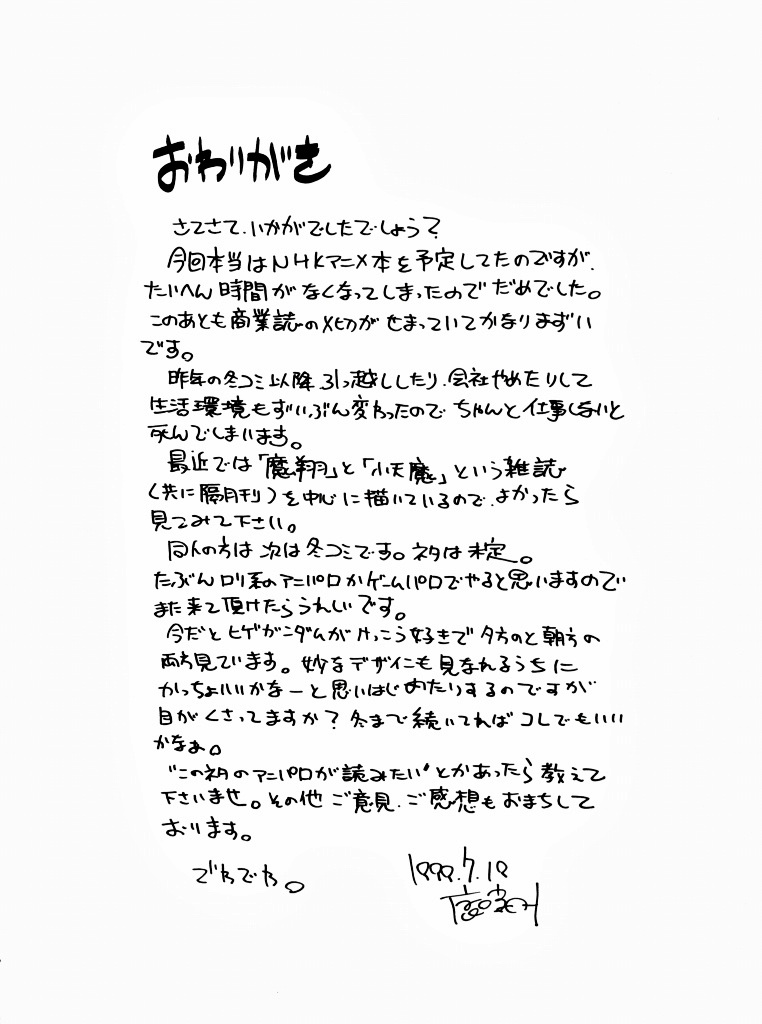 おわりがき
さてさて、いかがでしたでしょう?
今回本当はNHKアニメ本を予定してたのですが、
たいへん時間がなくなってしまったのでだめでした。
このあとも商業誌の〆切がせまっていてかなりまずい
です。
昨年の冬コミ以降引っ越ししたり、会社やめたりして
生活環境もずいぶん変わったのでちゃんと仕事しないと
死んでしまいます。
最近では「魔翔」と「小天魔」という雑誌
(共に隔月刊)を中心に描いているので、よかったら
見てみて下さい。
同人の方は次は冬コミです。ネタは未定。
たぶんロリ系のアニパロかゲームパロでやると思いますので
また来て頂けたらうれしいです。
今だとヒゲガンダムがけっこう好きで夕方のと朝方の
両方見ています。妙なデザインも見なれるうちに
かっちょいいかなーと思いはじめたりするのですが
目がくさってますか?冬まで続いてればコレでもいい
かなぁ。
"この ネタのアニパロが読みたい"とかあったら教えて
下さいませ。その他ご意見、ご感想もおまちして
おります。
でわでわ。
1999.7.10